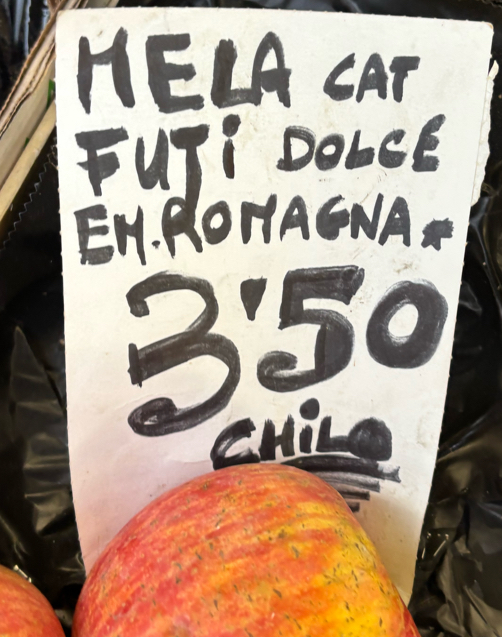 MELA CAT
FUJi DOLCE
EM.ROMAGNA.
3'50
CHiLO